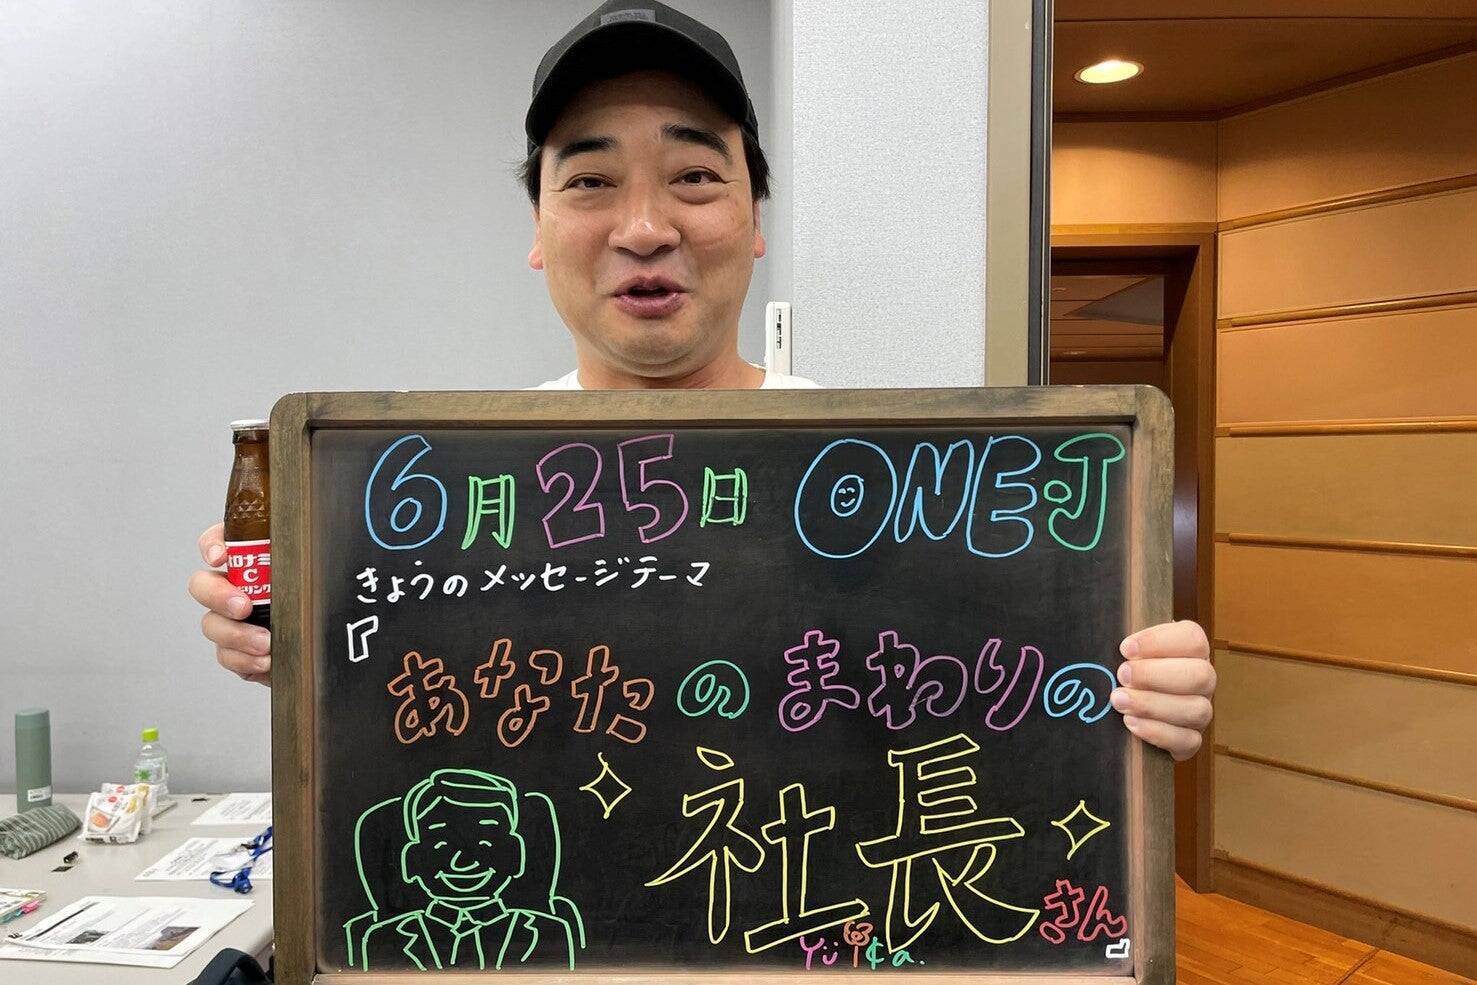 6月25日 ONE-J
きょうのメッセージテーマ
『あなたのまわりの
社長さん』
Yuika.
オロナミン
C
ドリンク